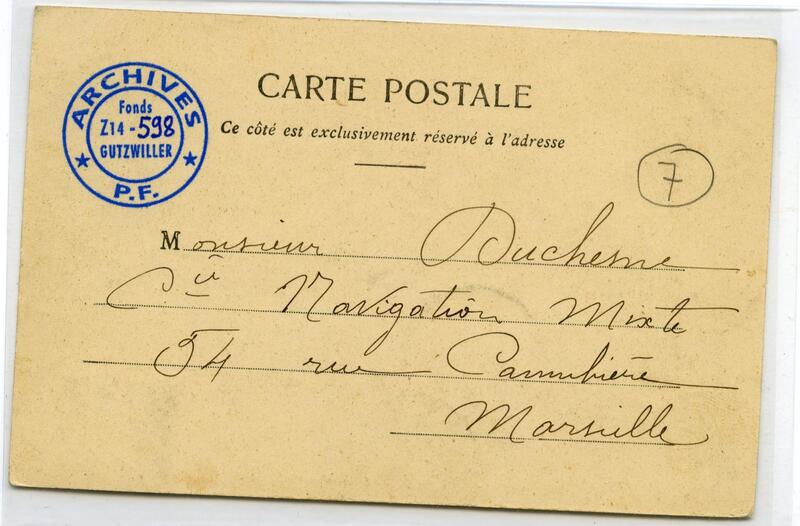 ARCHIVES
Fonds
Z14-598
GUTZWILLER
P.F.
CARTE POSTALE
Ce côté est exclusivement réservé à l'adresse
7
Monsieur Duchesne
Cie Navigation Mixte
54 rue Cannebière
Marseille